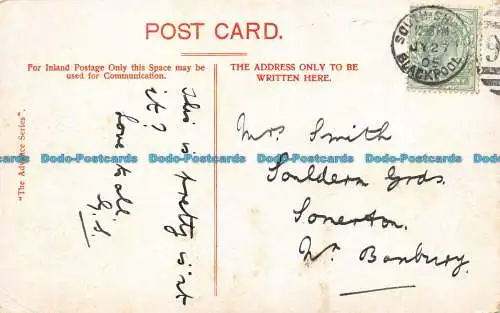 POST CARD.
For Inland Postage Only this Space may be
used for Communication.
THE ADDRESS ONLY TO BE
WRITTEN HERE.
"The Advance Series".
This is pretty is'nt
it?
Love to all
G.S.
Mrs Smith
Souldern Grds.
Somerton.
Nr Banbury.
SOUTH SHORE
JY 27
05
BLACKPOOL
9
Dodo-Postcards Dodo-Postcards Dodo-Postcards Dodo-Postcards